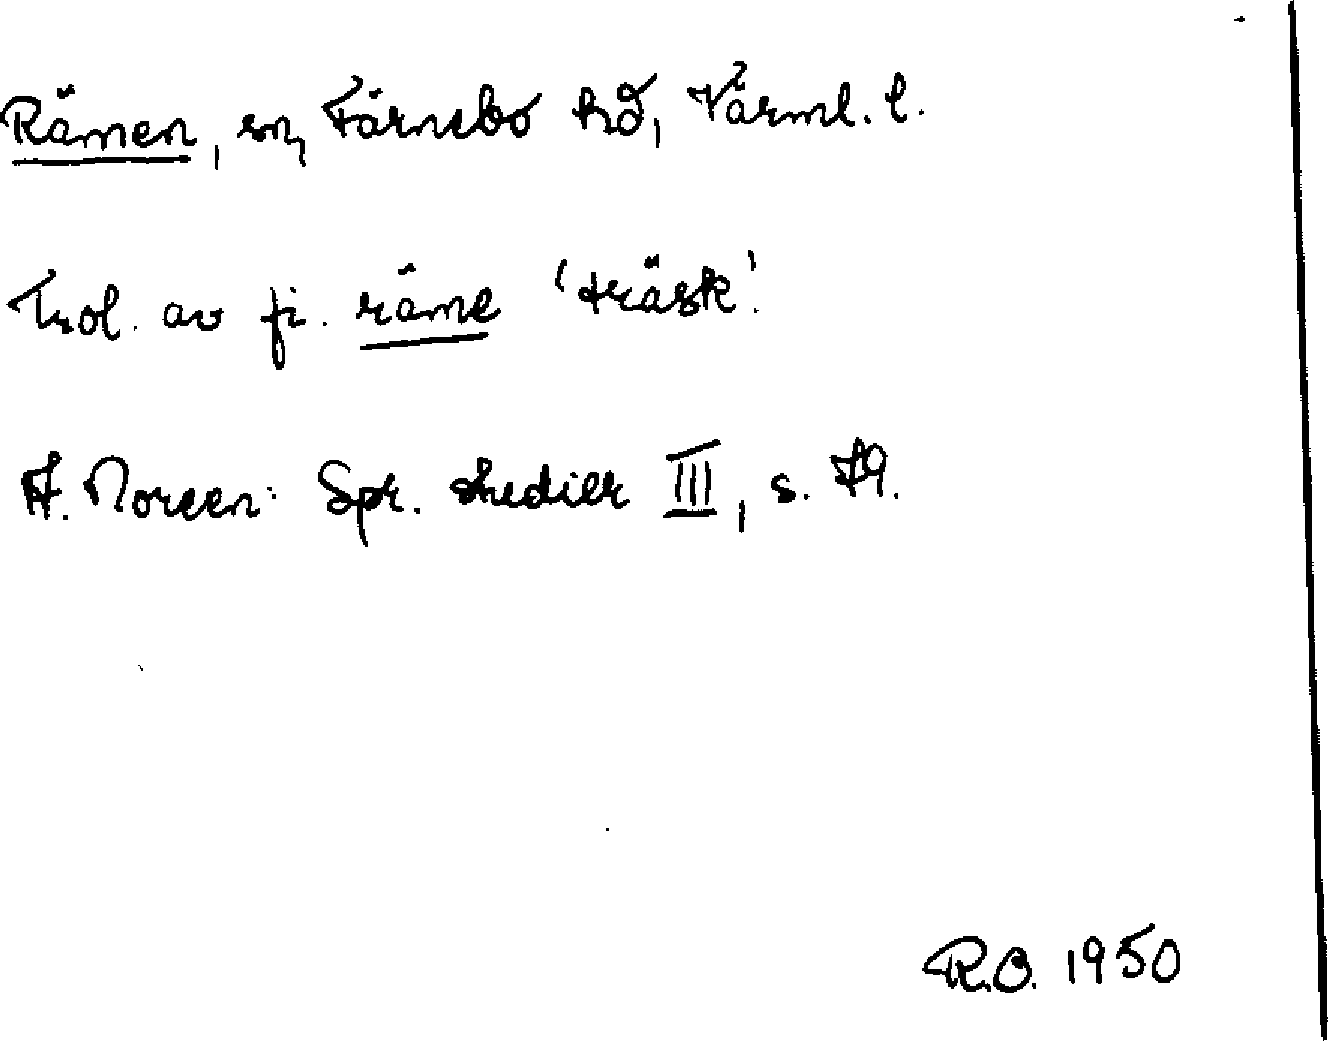 Rämen, sn, Färnebo hd, Värml. l.
Trol. av fi. räme 'träsk'.
A. Noreen: Spr. studier III, s. 79.
R.O. 1950